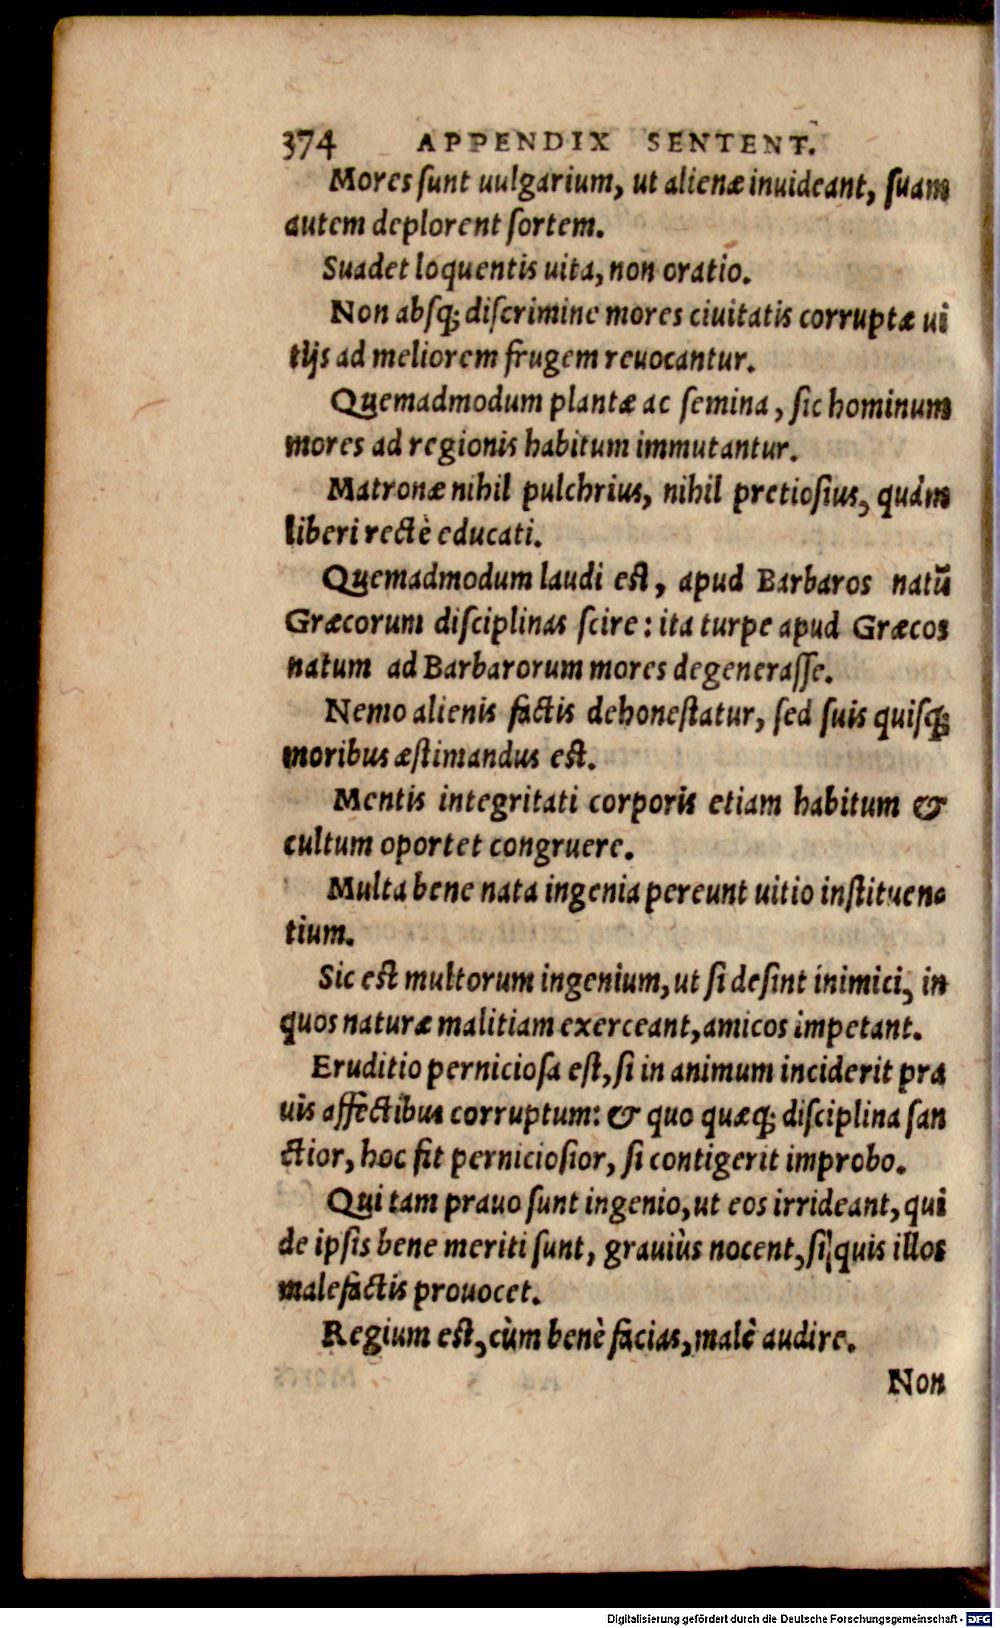 374 APPENDIX SENTENT.
Mores ſunt uulgarium, ut alienæ inuideant, ſuam
autem deplorent ſortem.
Suadet loquentis uita, non oratio.
Non abſq; diſcrimine mores ciuitatis corruptæ ui
tijs ad meliorem frugem reuocantur.
Quemadmodum plantæ ac ſemina, ſic hominum
mores ad regionis habitum immutantur.
Matronæ nihil pulchrius, nihil pretioſius, quàm
liberi rectè educati.
Quemadmodum laudi eſt, apud Barbaros natū
Græcorum diſciplinas ſcire: ita turpe apud Græcos
natum ad Barbarorum mores degeneraſſe.
Nemo alienis factis dehoneſtatur, ſed ſuis quiſq;
moribus æſtimandus eſt.
Mentis integritati corporis etiam habitum &
cultum oportet congruere.
Multa bene nata ingenia pereunt uitio inſtituen-
tium.
Sic eſt multorum ingenium, ut ſi deſint inimici, in
quos naturæ malitiam exerceant, amicos impetant.
Eruditio pernicioſa eſt, ſi in animum inciderit pra
uis affectibus corruptum: & quo quæq; diſciplina ſan
ctior, hoc fit pernicioſior, ſi contigerit improbo.
Qui tam prauo ſunt ingenio, ut eos irrideant, qui
de ipſis bene meriti ſunt, grauiùs nocent, ſi quis illos
malefactis prouocet.
Regium eſt, cùm benè facias, malè audire.
Non
Digitalisierung gefördert durch die Deutsche Forschungsgemeinschaft - DFG